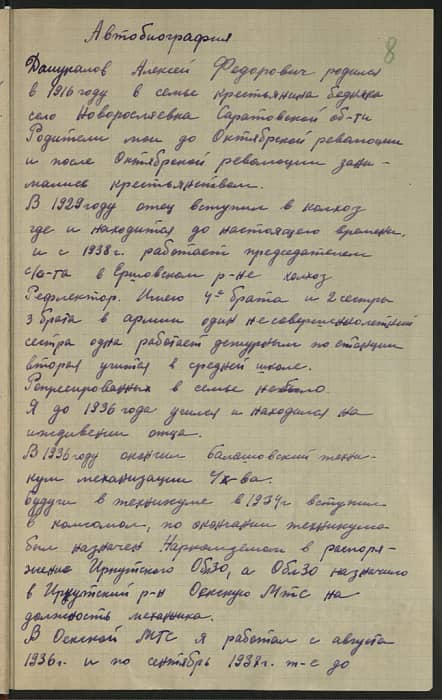 Автобиография
8
Дамукалов Алексей Федорович родился
в 1916 году в семье крестьянина бедняка
село Новорослявка Саратовской об-ти
Родители мои до Октябрской революции
и после Октябрской революции зани-
мались крестьянством.
В 1929 году отец вступил в колхоз
где и находится до настоящего времени,
и с 1938 г. работает председателем
с/с-та в Ершовском р-не колхоз
Рефлектор. Имею 4е брата и 2 сестры
3 брата в армии один несовершеннолетний
сестра одна работает дежурным по станции
вторая учится в средней школе.
Репресированных в семье небыло.
Я до 1936 года учился и находился на
иждивении отца.
В 1936 году окончил балашовский техни-
кум механизации с/х-ва.
будучи в техникуме в 1934 г вступил
в комсомол, по окончании техникума
был назначен Наркомземом в распоря-
жение Иркутского ОблЗО, а ОблЗО назначило
в Иркутский р-н Оекскую МТС на
должность механика.
В Оекской МТС я работал с августа
1936 г. и по сентябрь 1938 г. т-е до